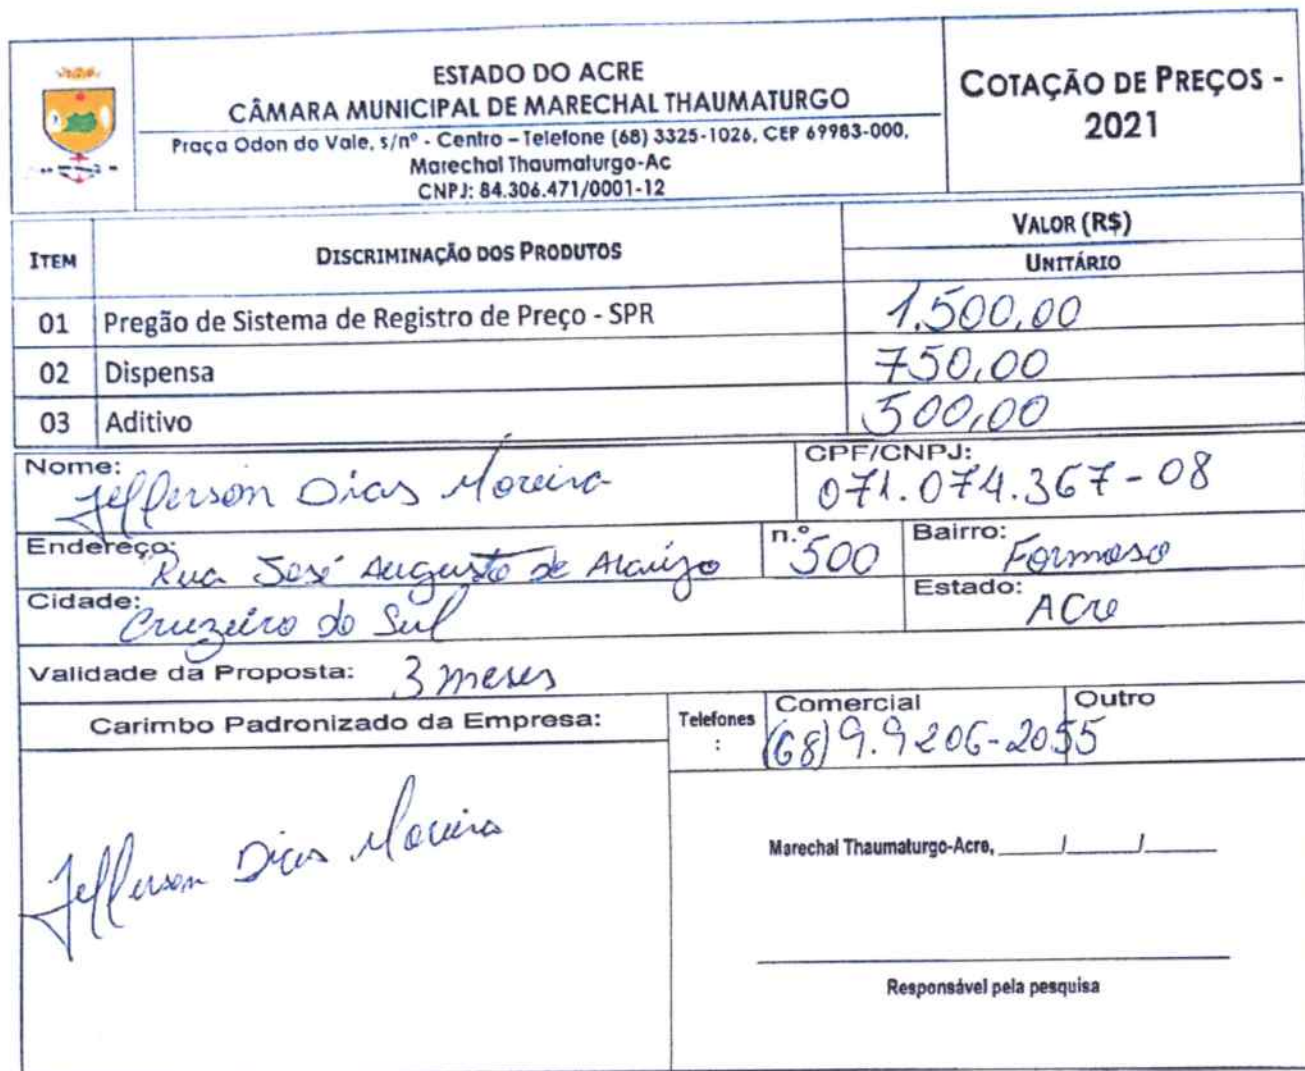 ESTADO DO ACRE
CÂMARA MUNICIPAL DE MARECHAL THAUMATURGO
Praça Odon do Vale, s/nº - Centro – Telefone (68) 3325-1026, CEP 69983-000,
Marechal Thaumaturgo-Ac
CNPJ: 84.306.471/0001-12
COTAÇÃO DE PREÇOS -
2021
ITEM
DISCRIMINAÇÃO DOS PRODUTOS
VALOR (R$)
UNITÁRIO
01 Pregão de Sistema de Registro de Preço - SPR 1.500,00
02 Dispensa 750,00
03 Aditivo 500,00
Nome: Jefferson Dias Moreira
CPF/CNPJ: 071.074.367-08
Endereço: Rua José Augusto de Araújo
n.º 500
Bairro: Formoso
Cidade: Cruzeiro do Sul
Estado: Acre
Validade da Proposta: 3 meses
Carimbo Padronizado da Empresa:
Telefones
:
Comercial
Outro
(68) 9.9206-2055
Jefferson Dias Moreira
Marechal Thaumaturgo-Acre, ____/____/____
Responsável pela pesquisa